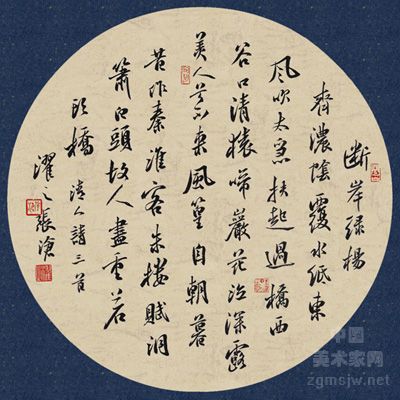 断岸绿楊
齊濃陰覆水低東
風吹太急扶起過橋西
谷口清猿啼巖花泣深露
美人兮不来風篁自朝暮
昔作秦淮客朱楼賦洞
簫白頭故人盡重
橋 清人詩三首
濯之張滄
中国
美术家网
zgmsjw.net